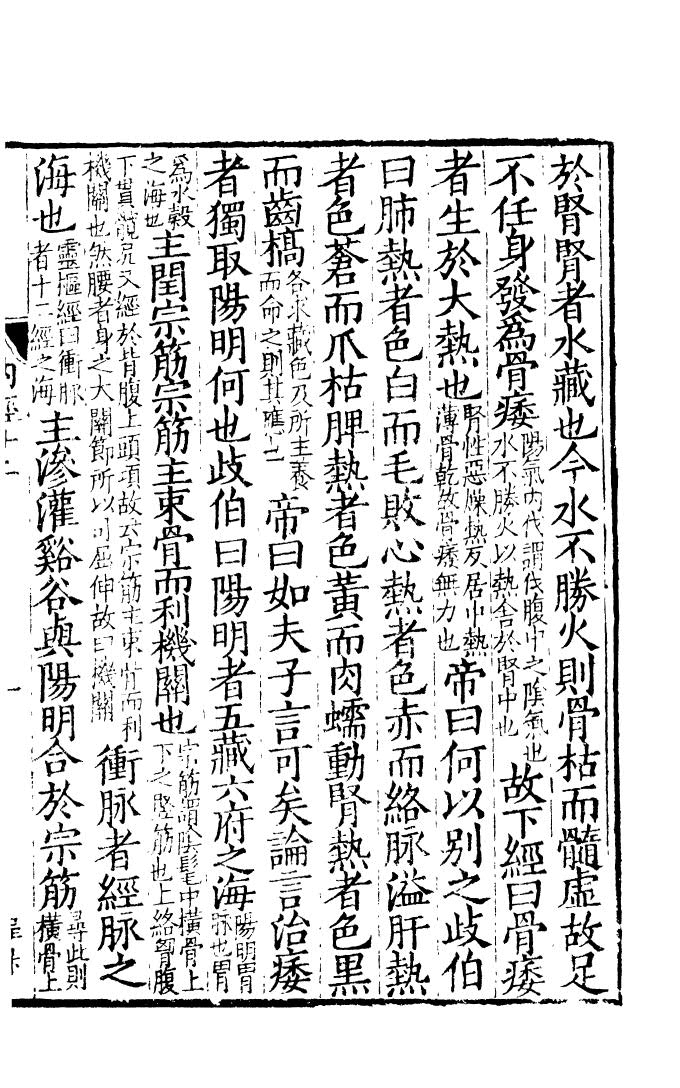 於腎腎者水藏也今水不勝火則骨枯而髓虛故足
不任身發爲骨痿陽氣內伐謂伐腹中之陰氣也水不勝火以熱舍於腎中也故下經曰骨痿
者生於大熱也腎性惡燥熱反居中熱薄骨乾故骨痿無力也帝曰何以別之歧伯
曰肺熱者色白而毛敗心熱者色赤而絡脉溢肝熱
者色蒼而爪枯脾熱者色黃而肉蠕動腎熱者色黑
而齒槁各求藏色及所主養而命之則其應也帝曰如夫子言可矣論言治痿
者獨取陽明何也歧伯曰陽明者五藏六府之海陽明胃脉也胃
爲水穀之海也主閏宗筋宗筋主束骨而利機關也宗筋謂陰髦中橫骨上下之竪筋也上絡胷腹
下貫髖尻又經於背腹上頭項故云宗筋主束骨而利機關也然腰者身之大關節所以司屈伸故曰機關衝脉者經脉之
海也靈樞經曰衝脉者十二經之海主滲灌谿谷與陽明合於宗筋尋此則橫骨上
內經十二